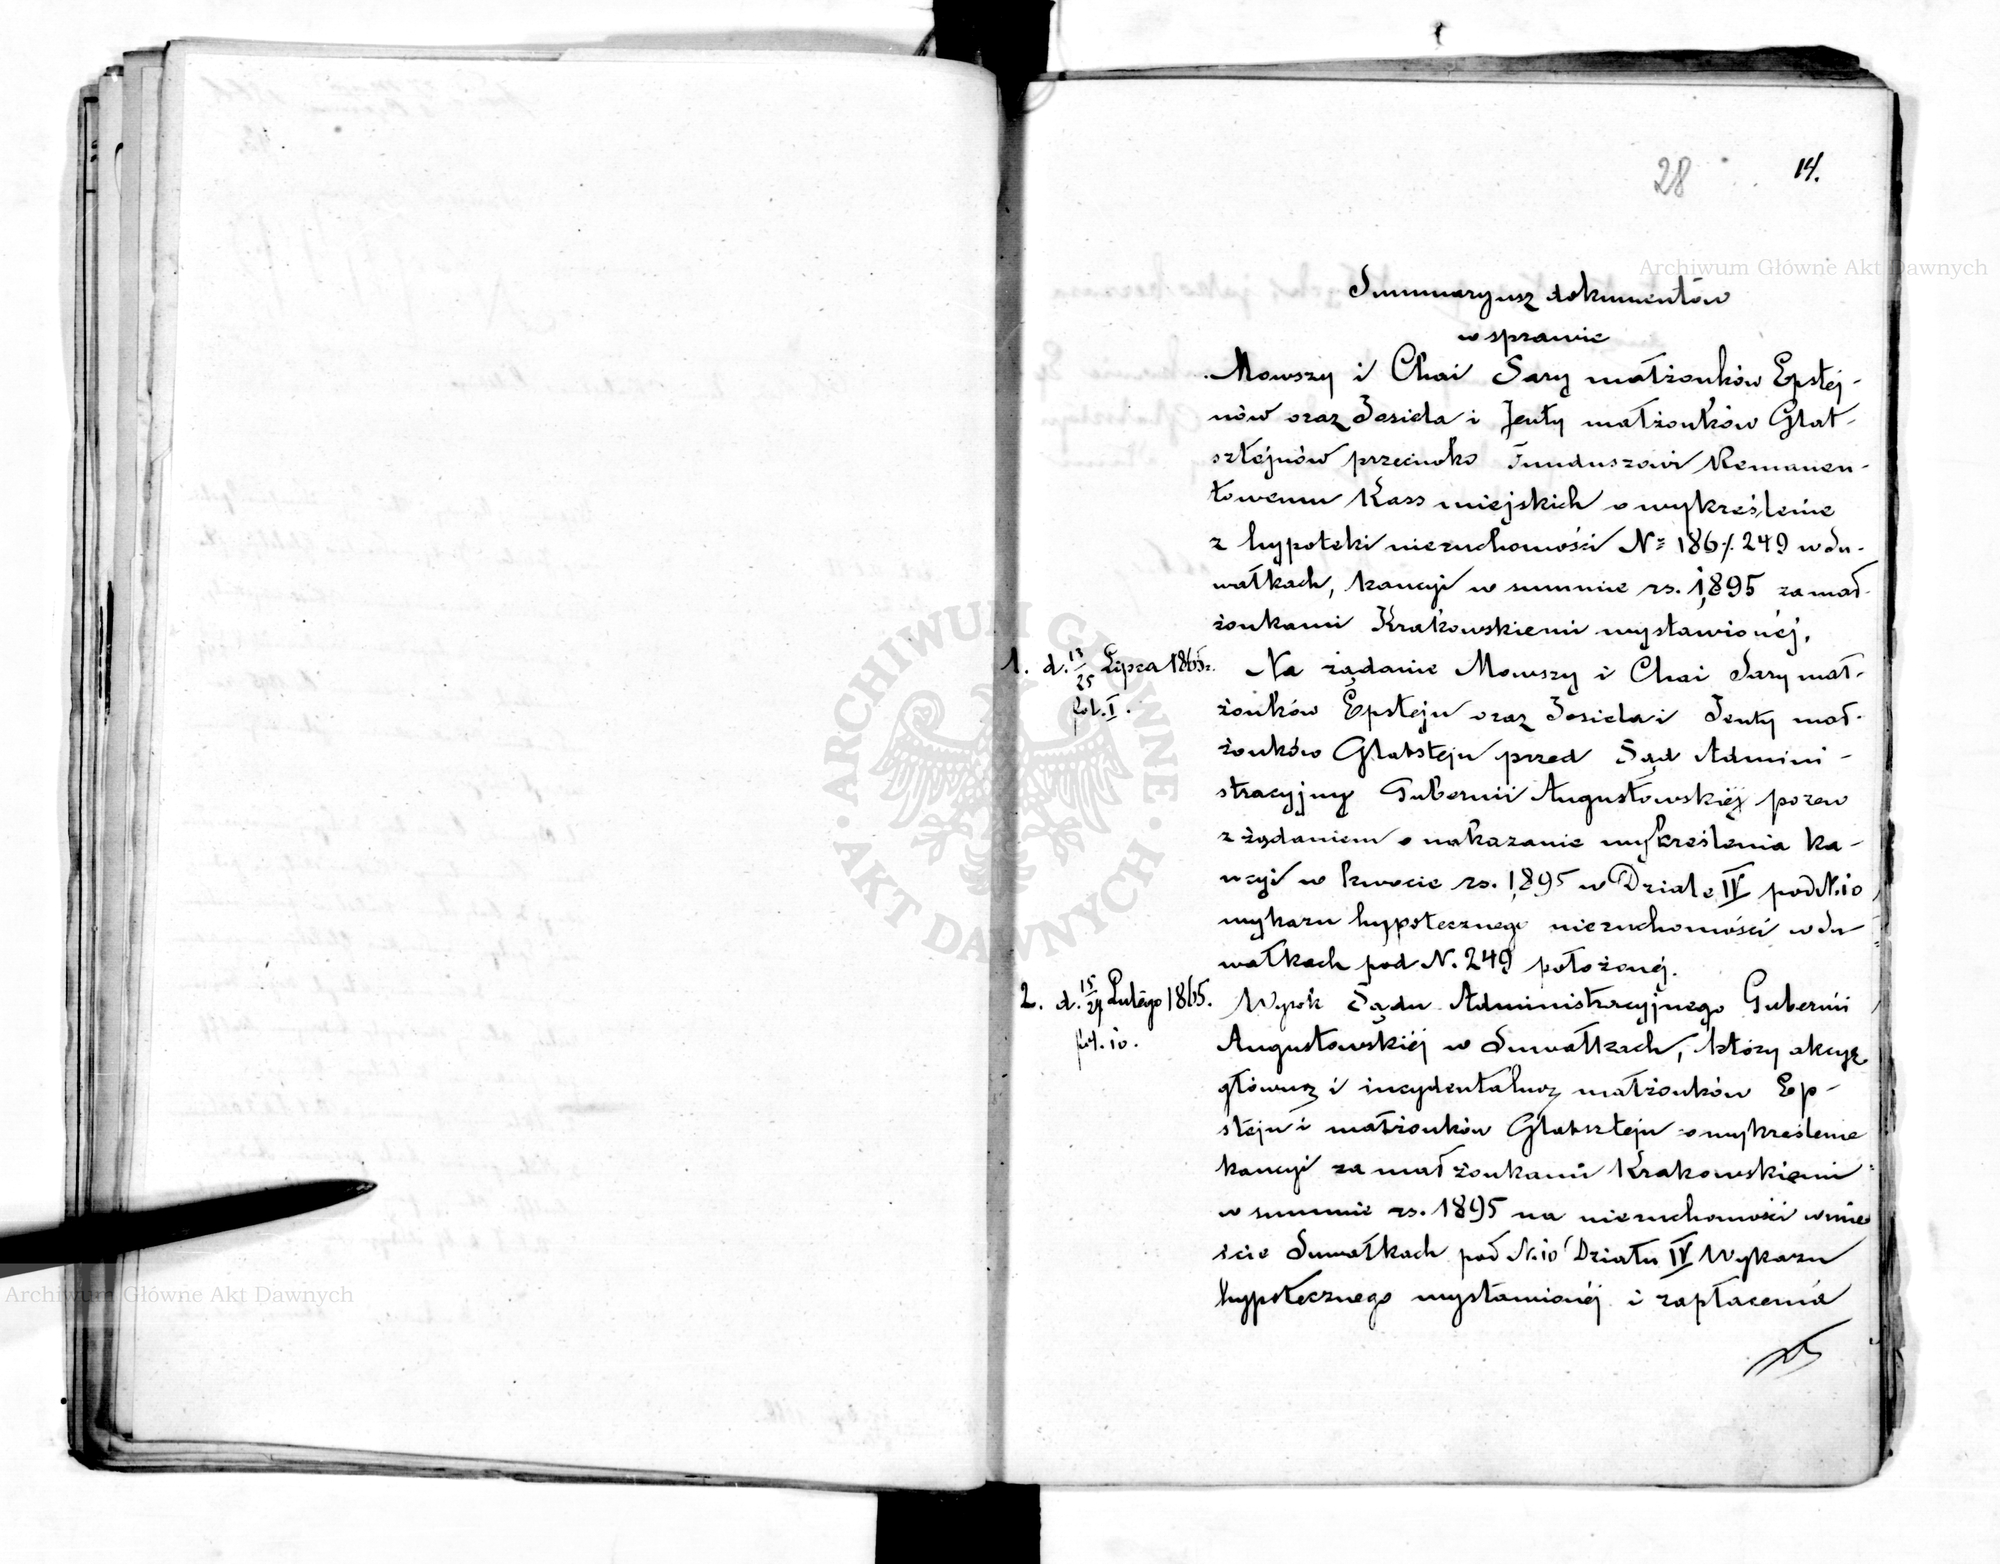 28 14.
Summaryusz dokumentów
w sprawie
Mowszy i Chai Sary małżonków Epstej-
nów oraz Josiela i Jenty małżonków Glat-
sztejnów przeciwko Funduszowi Remanen-
towemu Kass miejskich o wykreślenie
z hypoteki nieruchomości № 186/249 w Su-
wałkach, kaucyi w summie rs. 1,895 za mał-
żonkami Krakowskiemi wystawionéj.
1. d. 13/25 Lipca 1865r. Na żądanie Mowszy i Chai Sary mał-
fol. I. żonków Epstejn oraz Josiela i Jenty mał-
żonków Glatstejn przed Sąd Admini-
stracyjny Gubernii Augustowskiéj pozew
z żądaniem o nakazanie wykreślenia ka-
ucyi w kwocie rs. 1,895 w Dziale IV pod N. 10
wykazu hypotecznego nieruchomości w Su-
wałkach pod N. 249 położonéj.
2. d. 15/27 Lutego 1865. Wyrok Sądu Administracyjnego Gubernii
fol. 10. Augustowskiéj w Suwałkach, który akcyę
główną i incydentalną małżonków Ep-
stejn i małżonków Glatsztejn o wykreślenie
kaucyi za małżonkami Krakowskiemi
w summie rs. 1895 na nieruchomości w mie
ście Suwałkach pod N. 10 Działu IV Wykazu
hypotecznego wystawionéj i zapłacenia
Archiwum Główne Akt Dawnych
ARCHIWUM GŁÓWNE · AKT DAWNYCH ·
Archiwum Główne Akt Dawnych